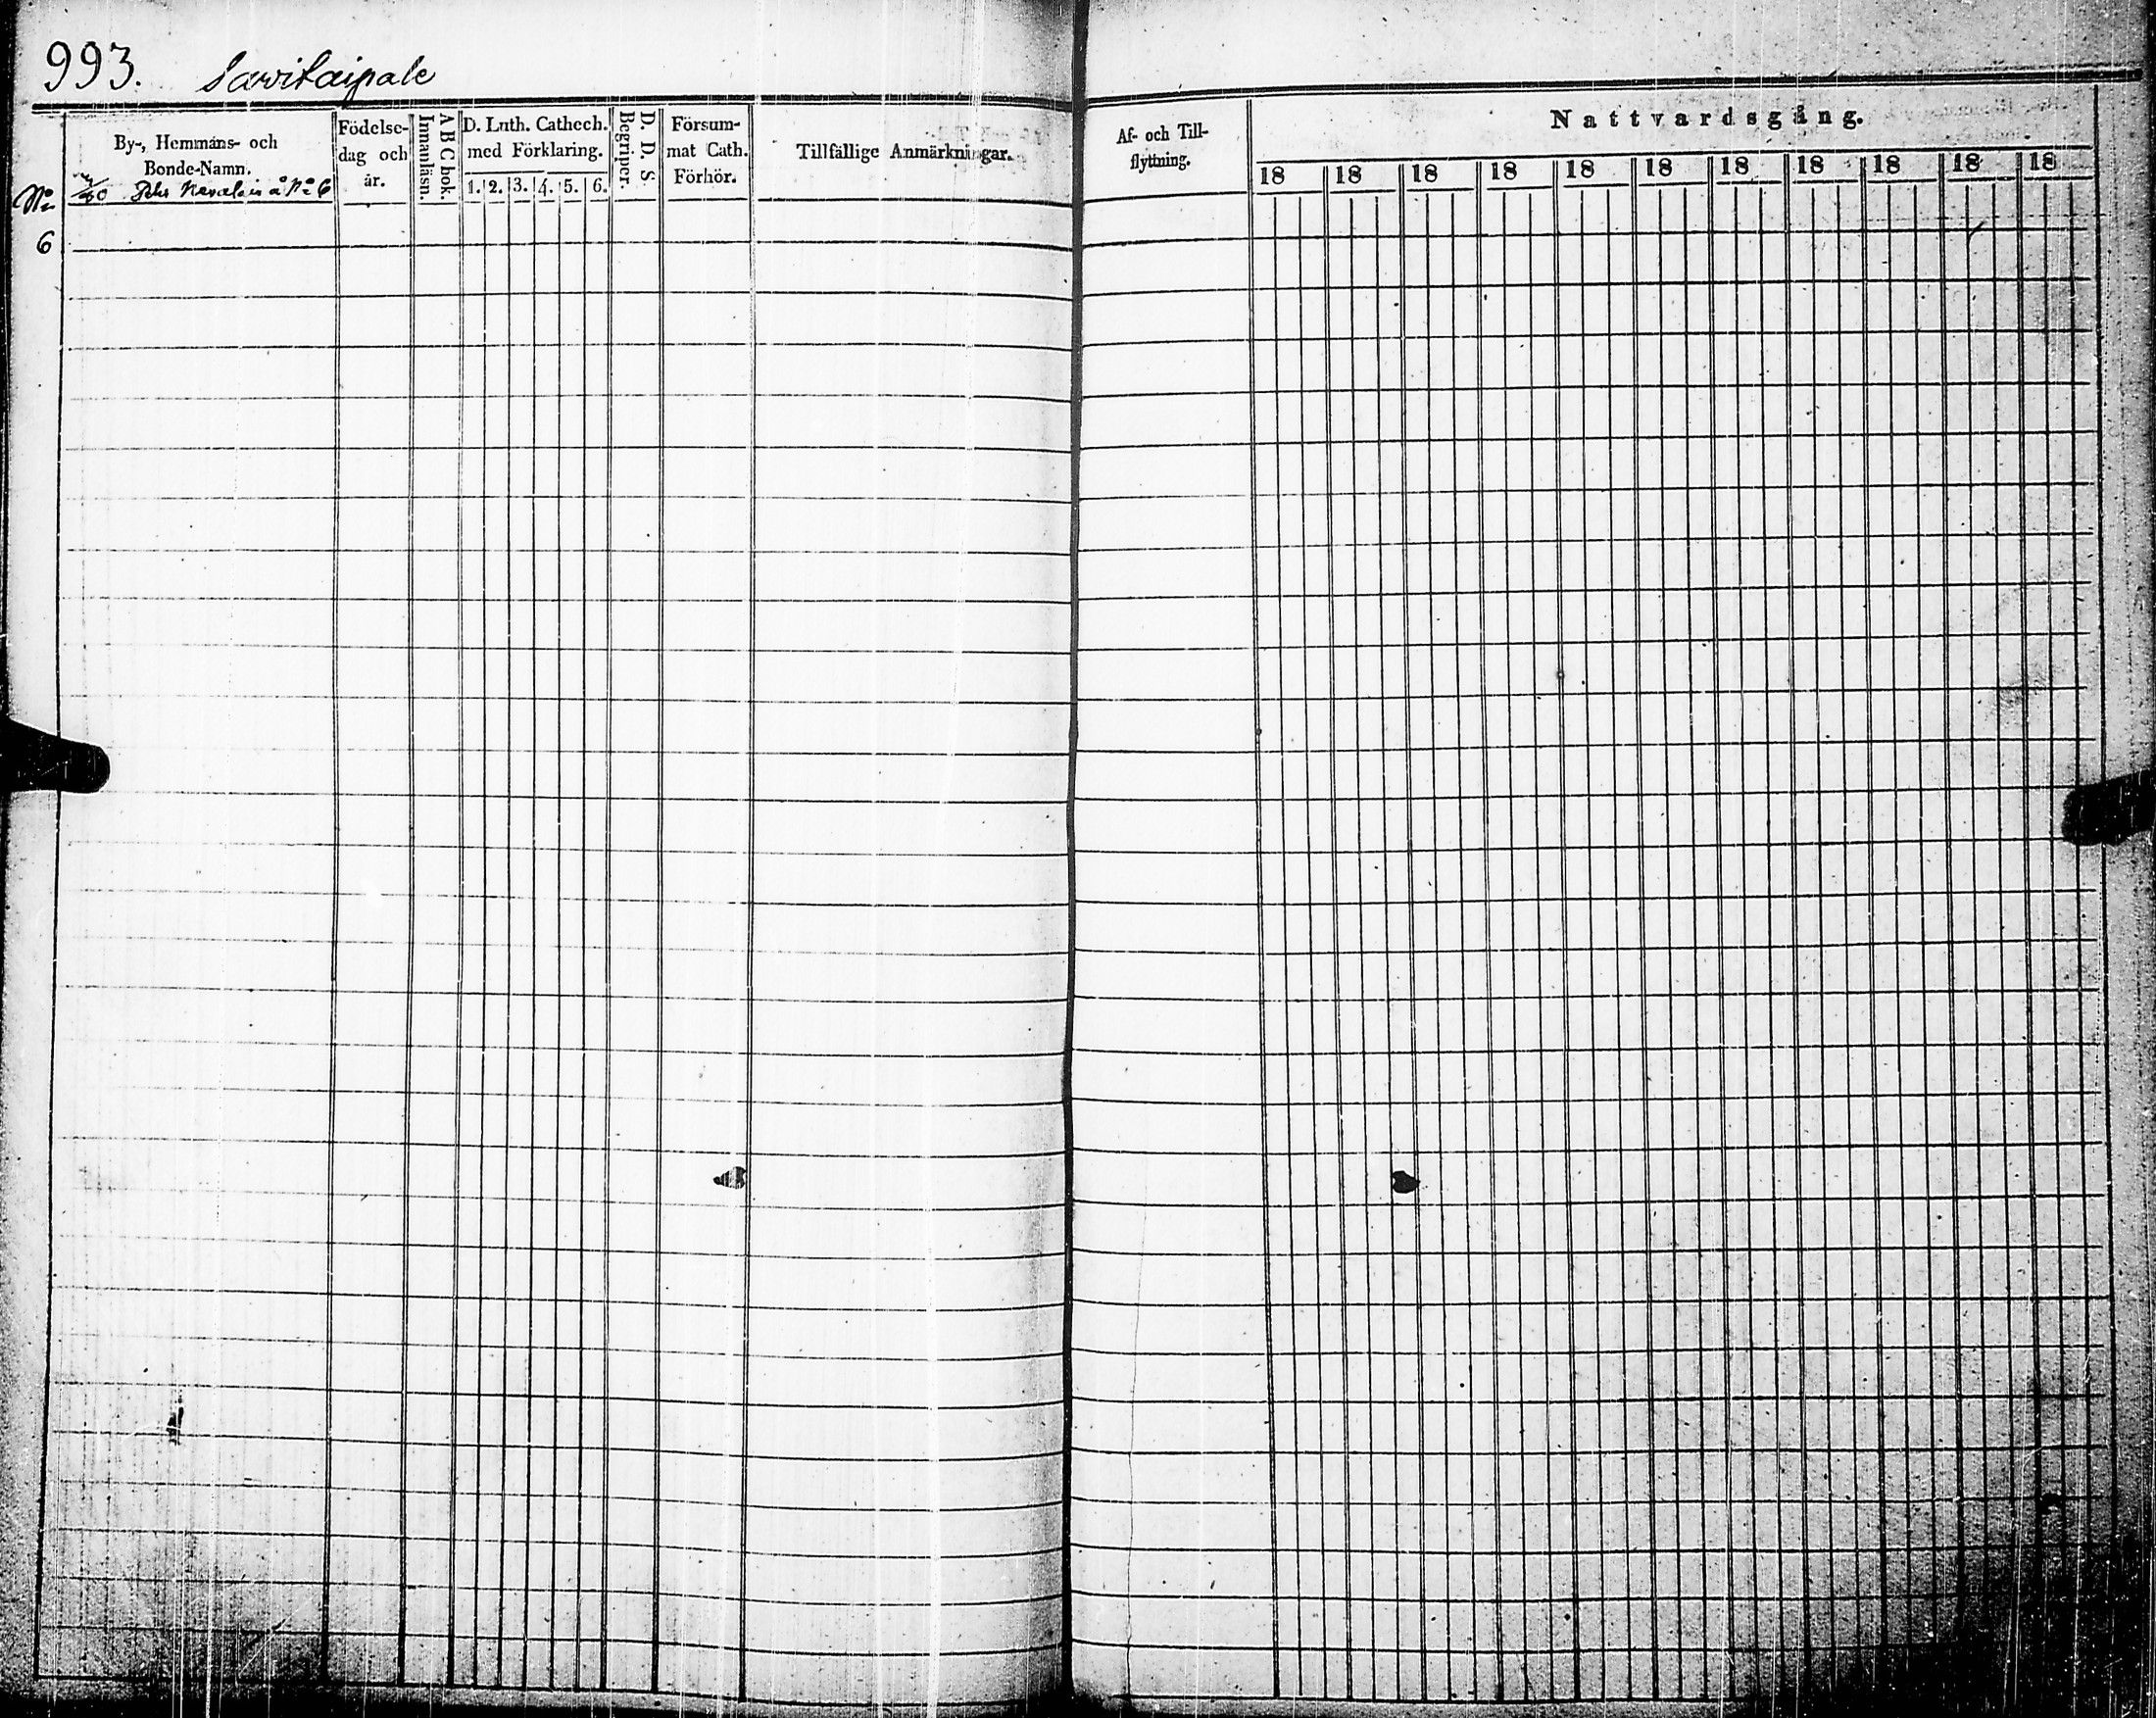 993. Savitaipale
By-, Hemmans- och
Bonde-Namn.
Födelse-
dag och
år.
A B C bok.
Innanläsn.
D. Luth. Cathech.
med Förklaring.
1. 2. 3. 4. 5. 6.
D. D. S.
Begriper.
Försum-
mat Cath.
Förhör.
Tillfällige Anmärkningar.
Af- och Till-
flyttning.
Nattvardsgång.
18 18 18 18 18 18 18 18 18 18 18
No
å No 6
6